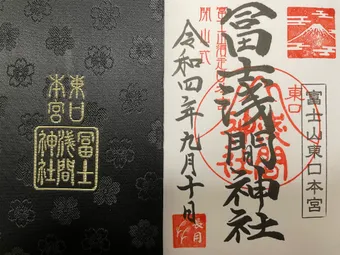 東口
本宮
冨士
浅間
神社
冨士浅間神社
令和四年九月十日
閉山式
東口
富士山東口本宮
長月